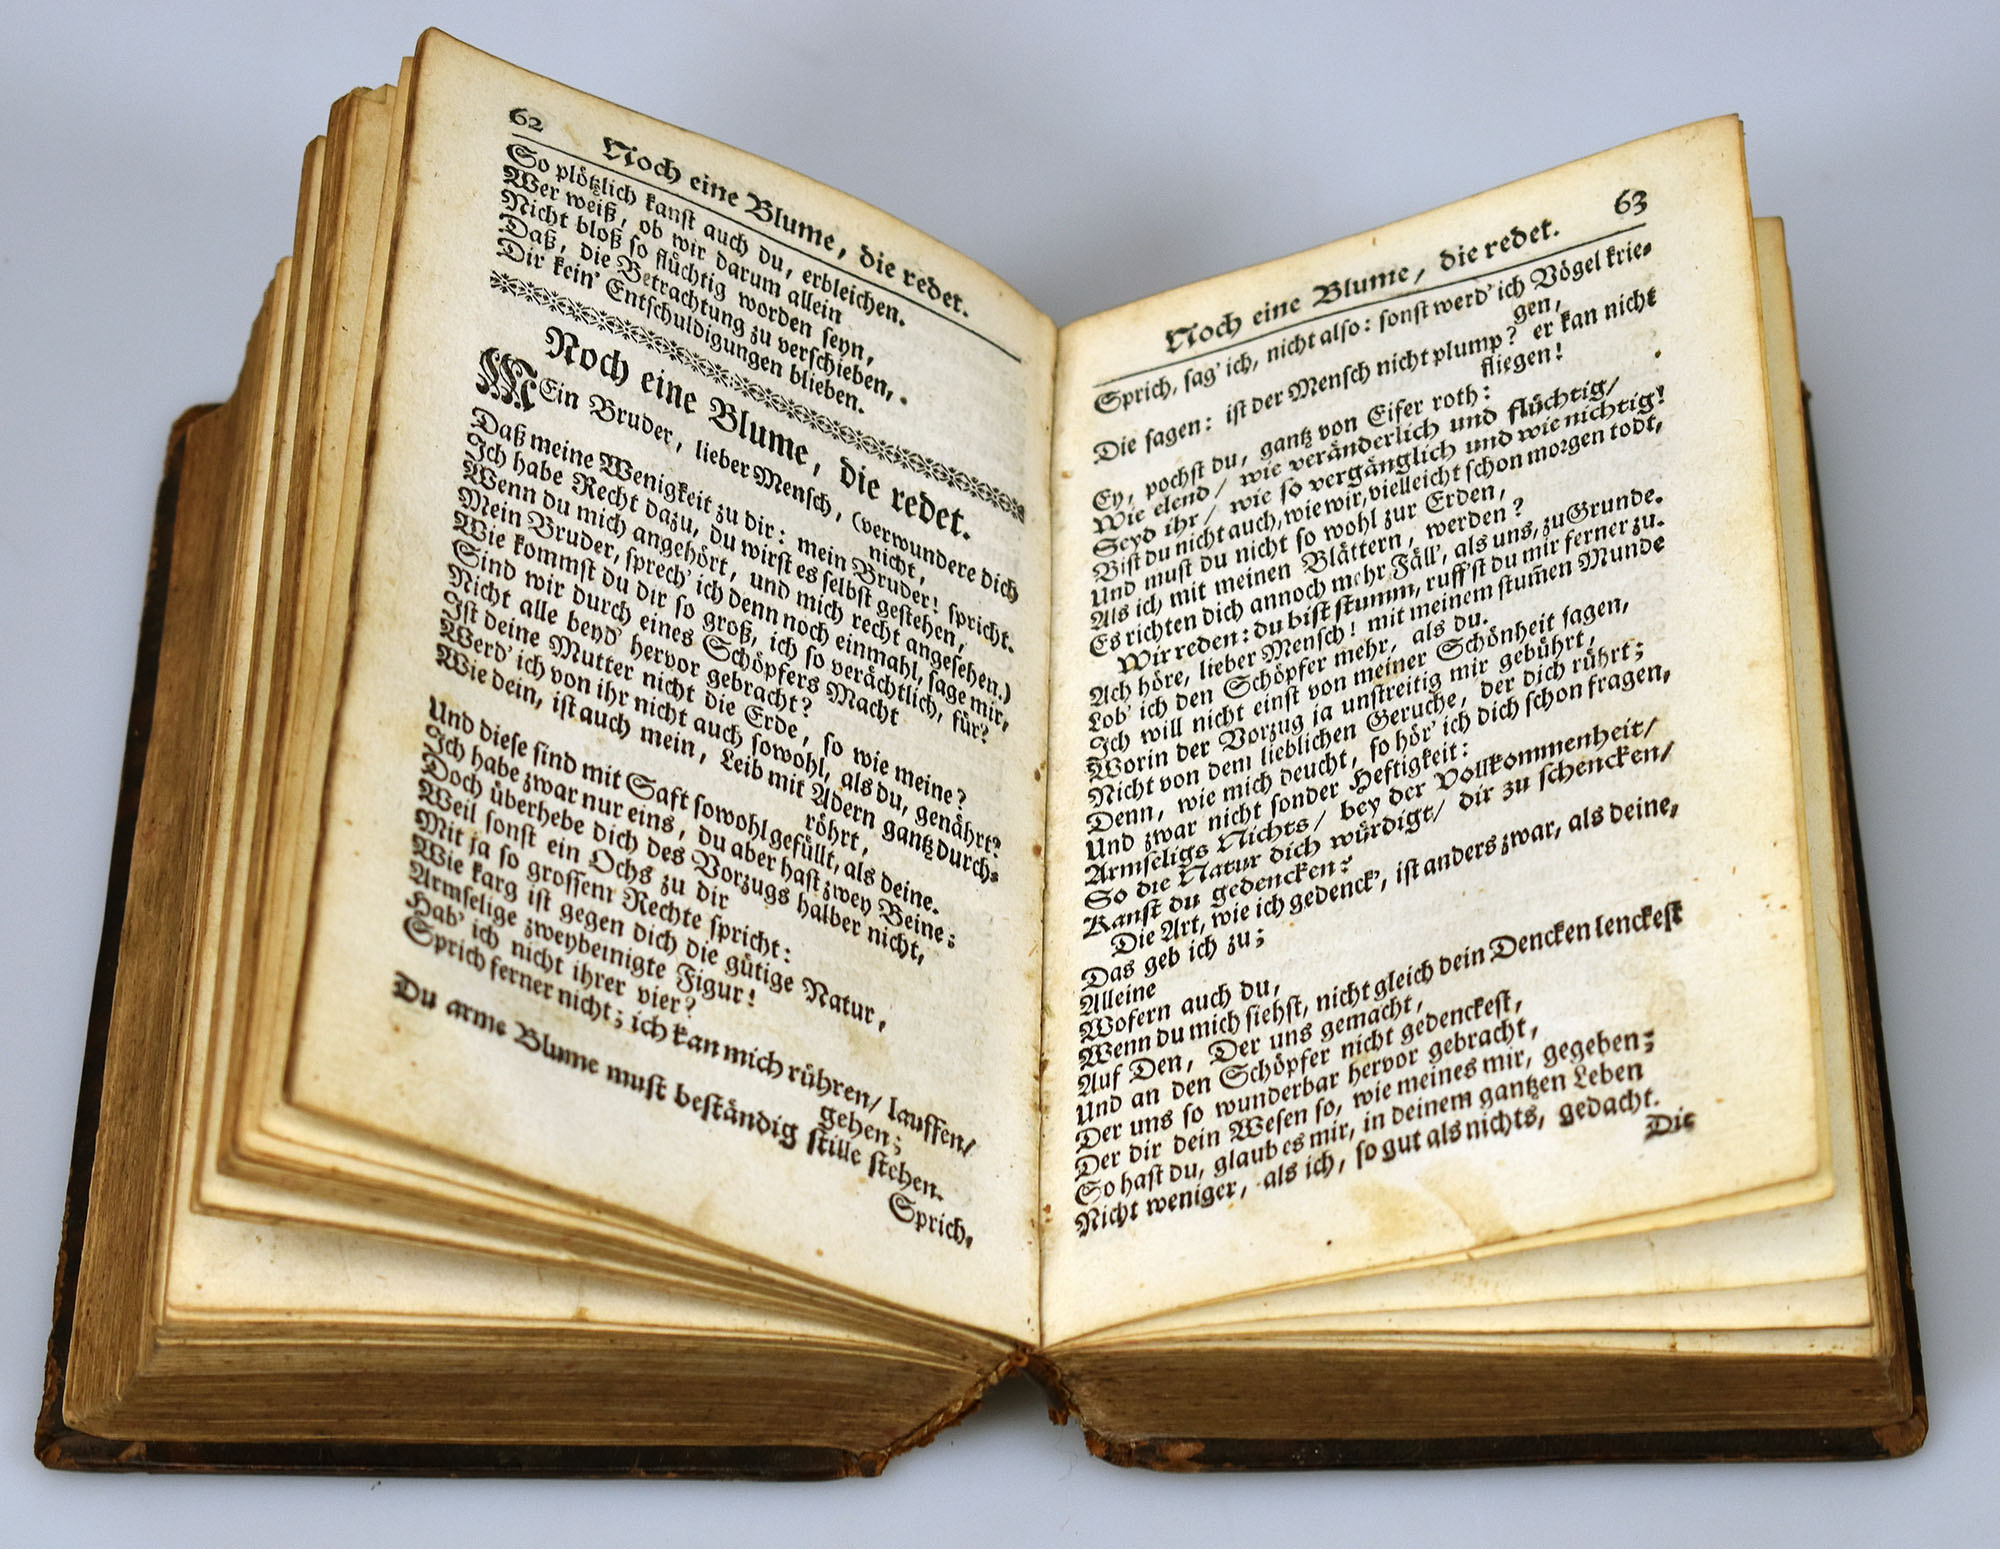 62
Noch eine Blume, die redet.
So plötzlich kanst auch du, erbleichen.
Wer weiß, ob wir darum allein
Nicht bloß so flüchtig worden seyn,
Daß, die Betrachtung zu verschieben,
Dir kein' Entschuldigungen blieben.
Noch eine Blume, die redet.
MEin Bruder, lieber Mensch, (verwundere dich
nicht,
Daß meine Wenigkeit zu dir: mein Bruder! spricht.
Ich habe Recht dazu, du wirst es selbst gestehen,
Wenn du mich angehört, und mich recht angesehen.)
Mein Bruder, sprech' ich denn noch einmahl, sage mir,
Wie kommst du dir so groß, ich so verächtlich, für?
Sind wir durch eines Schöpfers Macht
Nicht alle beyd' hervor gebracht?
Ist deine Mutter nicht die Erde, so wie meine?
Werd' ich von ihr nicht auch sowohl, als du, genährt?
Wie dein, ist auch mein, Leib mit Adern gantz durch-
röhrt,
Und diese sind mit Saft sowohl gefüllt, als deine.
Ich habe zwar nur eins, du aber hast zwey Beine;
Doch überhebe dich des Vorzugs halber nicht,
Weil sonst ein Ochs zu dir
Mit ja so grossem Rechte spricht:
Wie karg ist gegen dich die gütige Natur,
Armselige zweybeinigte Figur!
Hab' ich nicht ihrer vier?
Sprich ferner nicht; ich kan mich rühren/ lauffen/
gehen;
Du arme Blume must beständig stille stehen.
Sprich,
63
Noch eine Blume, die redet.
Sprich, sag' ich, nicht also: sonst werd' ich Vögel krie-
gen,
Die sagen: ist der Mensch nicht plump? er kan nicht
fliegen!
Ey, pochst du, gantz von Eifer roth:
Wie elend/ wie veränderlich und flüchtig/
Seyd ihr/ wie so vergänglich und wie nichtig!
Bist du nicht auch, wie wir, vielleicht schon morgen todt,
Und must du nicht so wohl zur Erden,
Als ich mit meinen Blättern, werden?
Es richten dich annoch mehr Fäll', als uns, zu Grunde.
Wir reden: du bist stumm, ruff'st du mir ferner zu.
Ach höre, lieber Mensch! mit meinem stum̃en Munde
Lob' ich den Schöpfer mehr, als du.
Ich will nicht einst von meiner Schönheit sagen,
Worin der Vorzug ja unstreitig mir gebührt,
Nicht von dem lieblichen Geruche, der dich rührt;
Denn, wie mich deucht, so hör' ich dich schon fragen,
Und zwar nicht sonder Heftigkeit:
Armseligs Nichts/ bey der Vollkommenheit/
So die Natur dich würdigt/ dir zu schencken/
Kanst du gedencken?
Die Art, wie ich gedenck', ist anders zwar, als deine,
Das geb ich zu;
Alleine
Wofern auch du,
Wenn du mich siehst, nicht gleich dein Dencken lenckest
Auf Den, Der uns gemacht,
Und an den Schöpfer nicht gedenckest,
Der uns so wunderbar hervor gebracht,
Der dir dein Wesen so, wie meines mir, gegeben;
So hast du, glaub es mir, in deinem gantzen Leben
Nicht weniger, als ich, so gut als nichts, gedacht.
Die